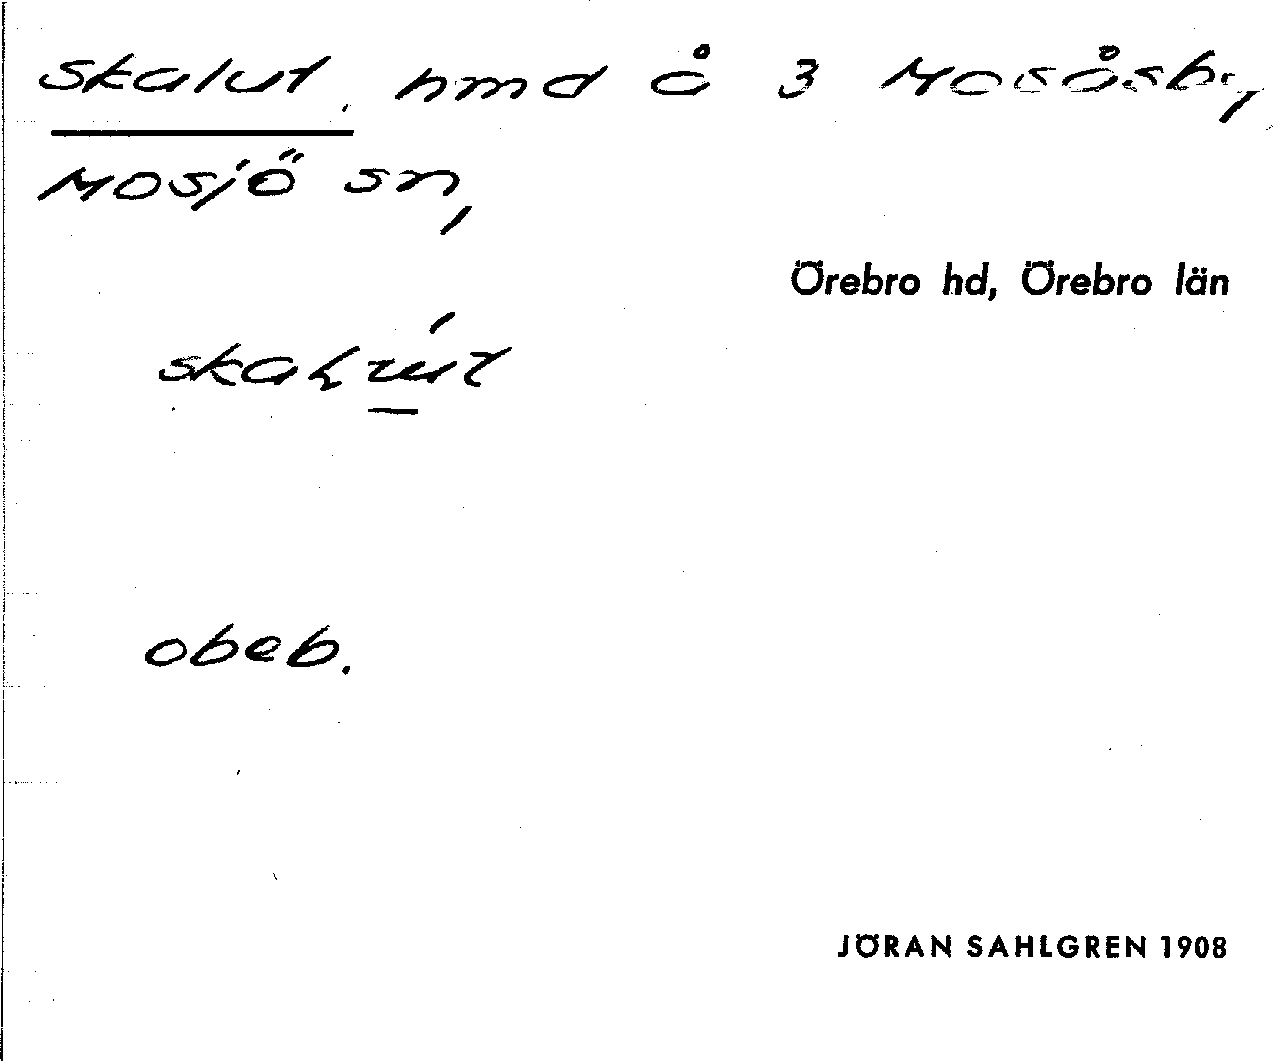 Skalut, hmd å 3 Mosåsby,
Mosjö sn,
Örebro hd, Örebro län
obeb.
JÖRAN SAHLGREN 1908